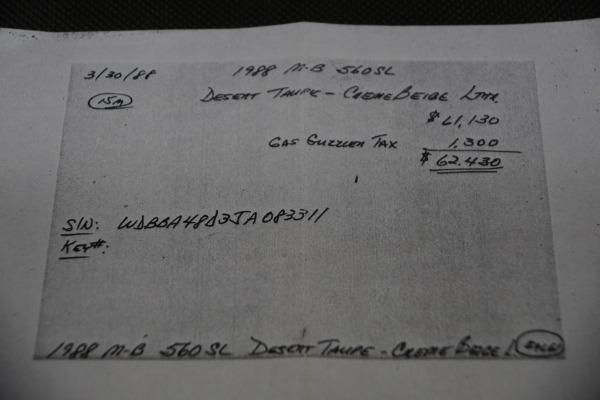 3/30/88 1988 M-B 560SL
15M DESERT TAUPE - CREME BEIGE LTHR
$61,130
GAS GUZZLER TAX 1,300
$62,430
S/N: WDBBA48D3JA083311
KEY#:
1988 M-B 560SL DESERT TAUPE - CREME BEIGE L